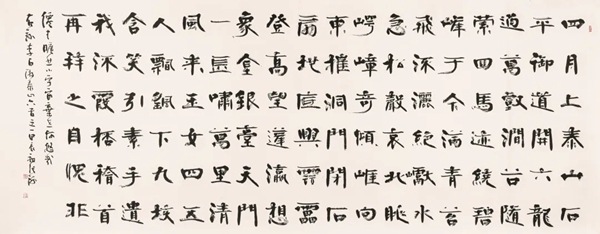 四月上泰山石
平御道開六龍
過萬壑澗谷隨
縈回馬迹繞碧
峰于今滿青苔
飛流灑絕巘水
急松聲哀北眺
崿嶂奇傾崖向
東摧洞門閉石
扇地底興雲雷
登高望蓬瀛想
象金銀臺天門
一長嘯萬里清
風來玉女四五
人飄颻下九垓
含笑引素手遺
我流霞杯稽首
再拜之自愧非
仙才曠然小宇宙棄世何悠哉
右錄李白游泰山六首之一